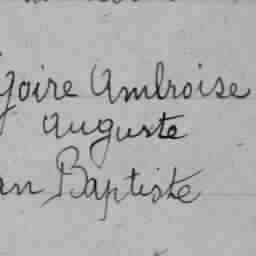 goire Ambroise
Auguste
an Baptiste